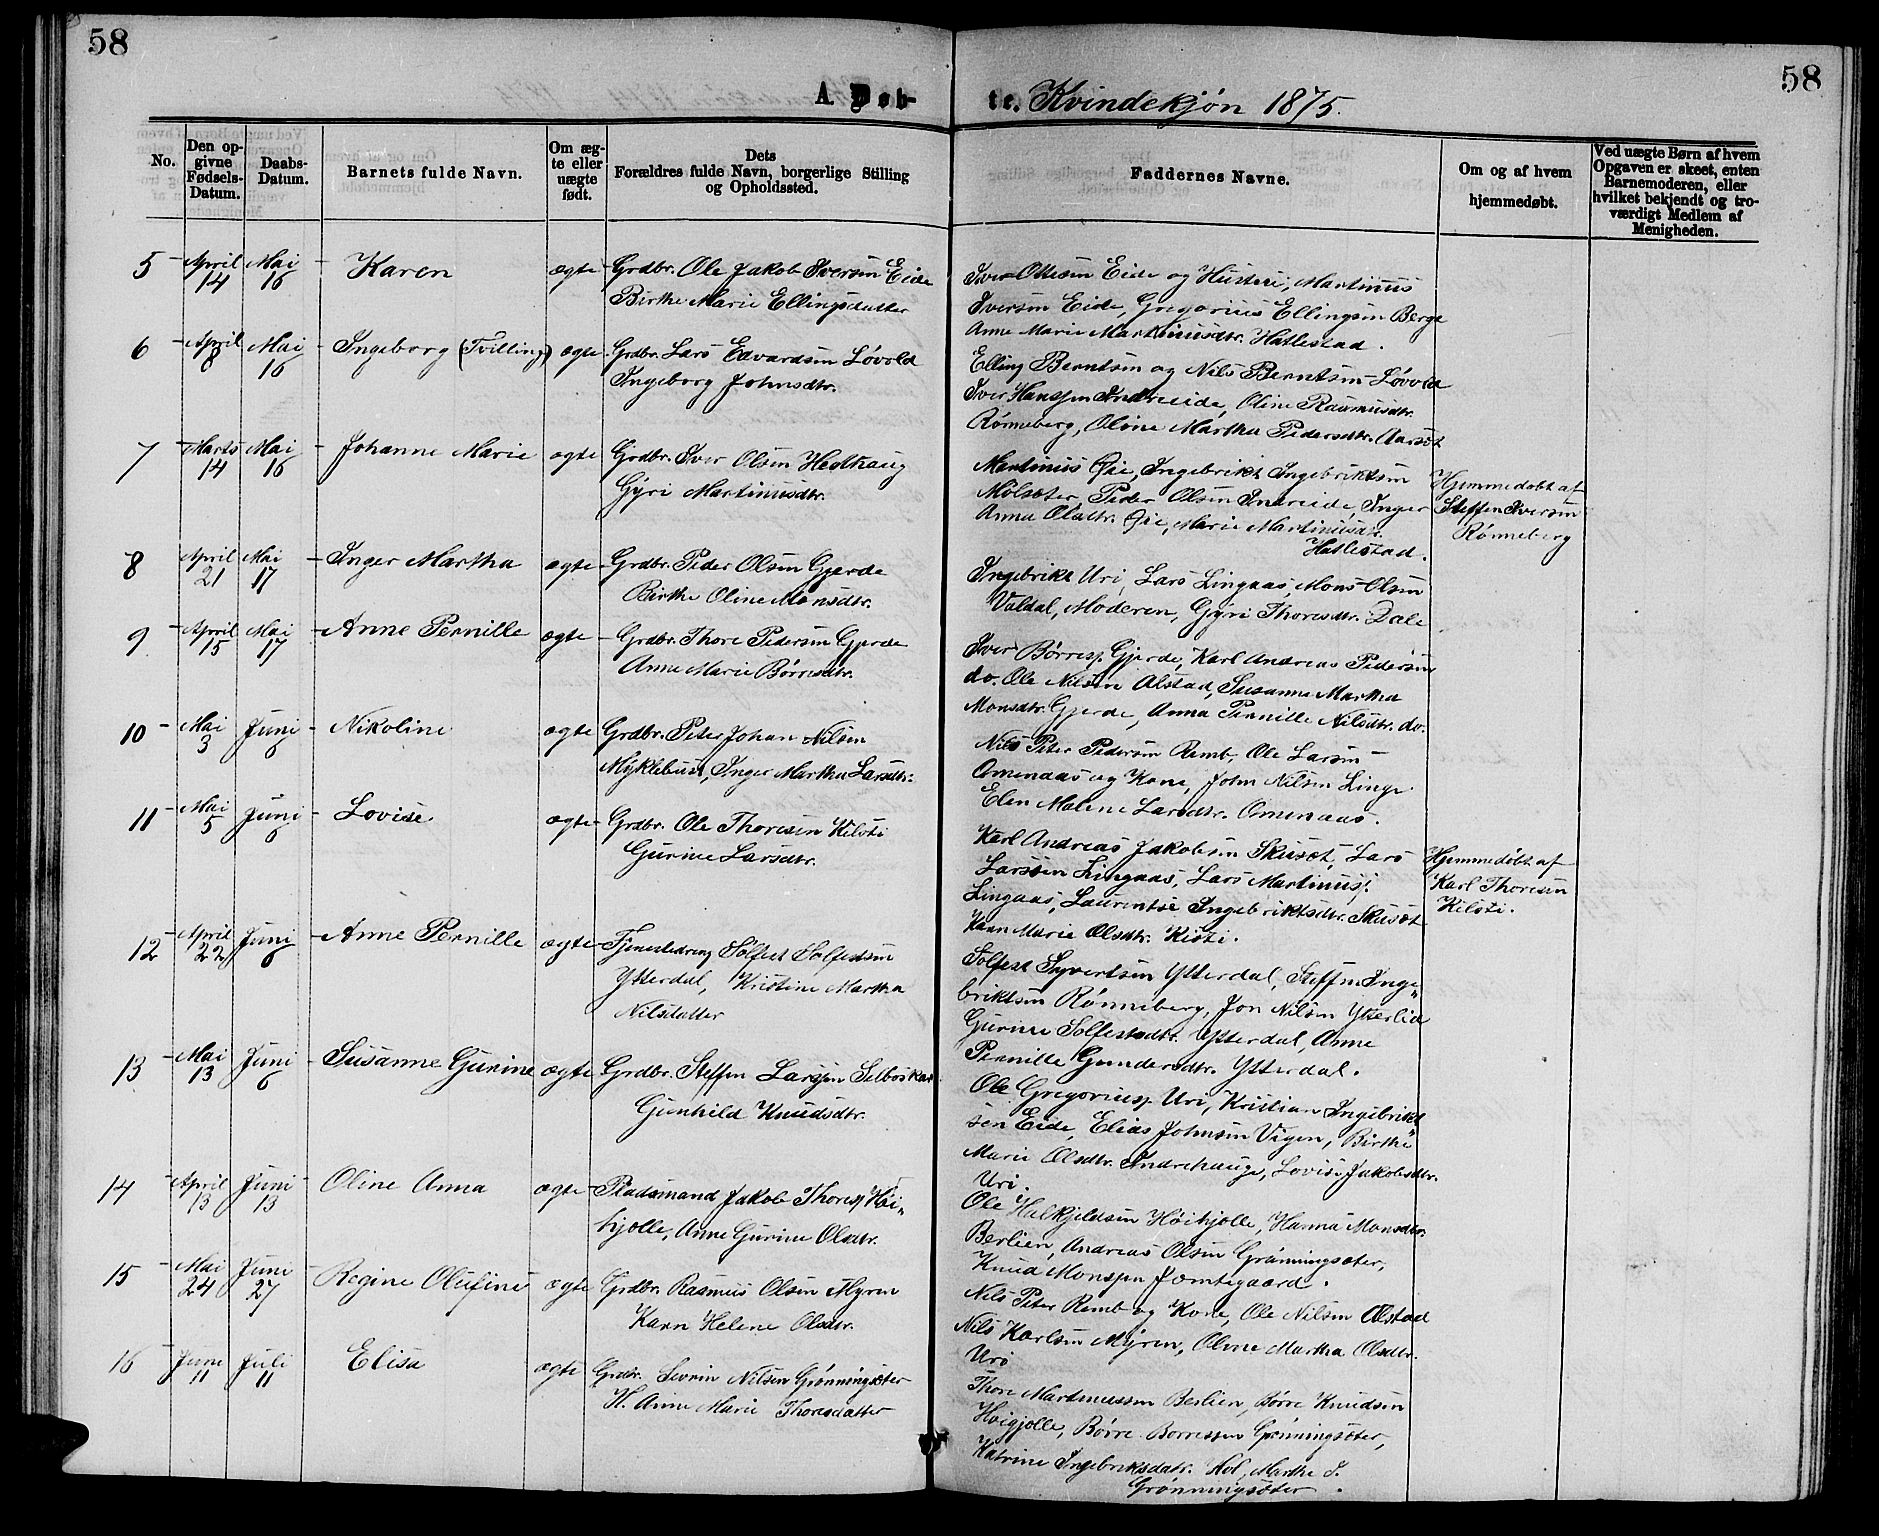 58
58
A. Døb-
te. Kvindekjøn 1875.
No.
Den op-
givne
Fødsels-
Datum.
Daabs-
Datum.
Barnets fulde Navn.
Om æg-
te eller
uægte
født.
Dets
Forældres fulde Navn, borgerlige Stilling
og Opholdssted.
Faddernes Navne.
Om og af hvem
hjemmedøbt.
Ved uægte Børn af hvem
Opgaven er skeet, enten
Barnemoderen, eller
hvilket bekjendt og tro-
værdigt Medlem af
Menigheden.
5 April 14 Mai 16 Karen ægte Grdbr. Ole Jakob Iversen Eide
Birthe Marie Ellingsdatter
Iver Ottesen Eide og Hustru, Martinus
Iversen Eide, Gregorius Ellingsen Berge
Anne Marie Martinusdtr. Hatlestad.
6 April 8 Mai 16 Ingeborg (Tvilling) ægte Grdbr. Lars Edvardsen Løvold
Ingeborg Johnsdtr.
Elling Berntsen og Nils Berntsen Løvold
Iver Hanssen Indreeide, Oline Rasmusdtr.
Rønneberg, Oline Martha Pedersdtr. Aarset
7 Marts 14 Mai 16 Johanne Marie ægte Grdbr. Iver Olsen Hedthaug
Gyri Martinusdtr.
Martinus Øie, Ingebrikt Ingebriktsen
Molsæter, Peder Olsen Indreide, Inger
Anna Olsdtr. Øie, Marie Martinusdtr.
Hatlestad.
Hjemmedøbt af
Steffen Iversen
Rønneberg
8 April 21 Mai 17 Inger Martha ægte Grdbr. Peder Olsen Gjerde
Birthe Oline Monsdtr.
Ingebrikt Uri, Lars Lingaas, Mons Olsen
Valdal, Moderen, Gyri Thoresdtr. Dale
9 April 15 Mai 17 Anne Pernille ægte Grdbr. Thore Pedersen Gjerde
Anne Marie Børresdtr.
Iver Børres. Gjerde, Karl Andreas Pedersen
do. Ole Nilsen Alstad, Susanne Martha
Monsdtr. Gjerde, Anna Pernille Nilsdtr. do.
10 Mai 3 Juni 6 Nikoline ægte Grdbr. Peter Johan Nilsen
Myklebust, Inger Martha Larsdtr.
Nils Peter Pedersen Remb, Ole Larsen
Omenaas og Kone, John Nilsen Linge
Elen Malene Larsdtr. Omenaas.
11 Mai 5 Juni 6 Lovise ægte Grdbr. Ole Thoresen Kilsti
Gurine Larsdtr.
Karl Andreas Jakobsen Skuset, Lars
Larssen Lingaas, Lars Martinus.
Lingaas, Laurentse Ingebriktsdtr. Skuset
Karn Marie Olsdtr. Kisti.
Hjemmedøbt af
Karl Thoresen
Kilsti.
12 April 22 Juni 6 Anne Pernille ægte Tjenestedreng Solfest Solfestsen
Ytterdal, Kristine Martha
Nilsdatter
Solfest Syvertsen Ytterdal, Steffen Inge-
briktsen Rønneberg, Jon Nilsen Ytterlid
Gurine Solfestsdtr. Ytterdal, Anne
Pernille Gundersdtr. Ytterdal.
13 Mai 13 Juni 6 Susanne Gurine ægte Grdbr. Steffen Larssen Selboskar
Gunhild Knudsdtr.
Ole Gregorius. Uri, Kristian Ingebrikt-
sen Eide, Elias Johnsen Vigen, Birthe
Marie Olsdtr. Indrehauge, Lovise Jakobsdtr.
Uri.
14 April 13 Juni 13 Oline Anna ægte Pladsmand Jakob Thores. Høi-
hjolle, Anne Gurine Olsdtr.
Ole Halkjeldsen Høihjolle, Hanna Monsdtr.
Berlien, Andreas Olsen Grønningsæter,
Knud Monssen Jemtegaard.
15 Mai 24 Juni 27 Regine Olufine ægte Grdbr. Rasmus Olsen Myren
Karn Helene Olsdtr.
Nils Peter Remb og Kone, Ole Nilsen Alstad
Nils Karlsen Myren, Oline Martha Olsdtr.
Uri
16 Juni 11 Juli 11 Elisa ægte Grdbr. Sevrin Nilsen Grønningsæter
H. Anne Marie Thoresdatter
Thore Martinussen Berlien, Børre Knudsen
Høigjolle, Børre Borressen Grønningsæter,
Katrine Ingebriksdatr. Hol, Marthe I.
Grønningsæter.